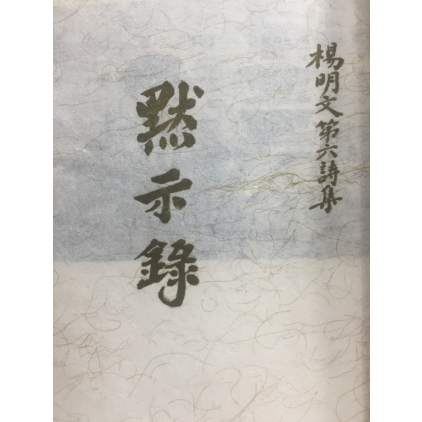 楊明文第六詩集
黙示錄